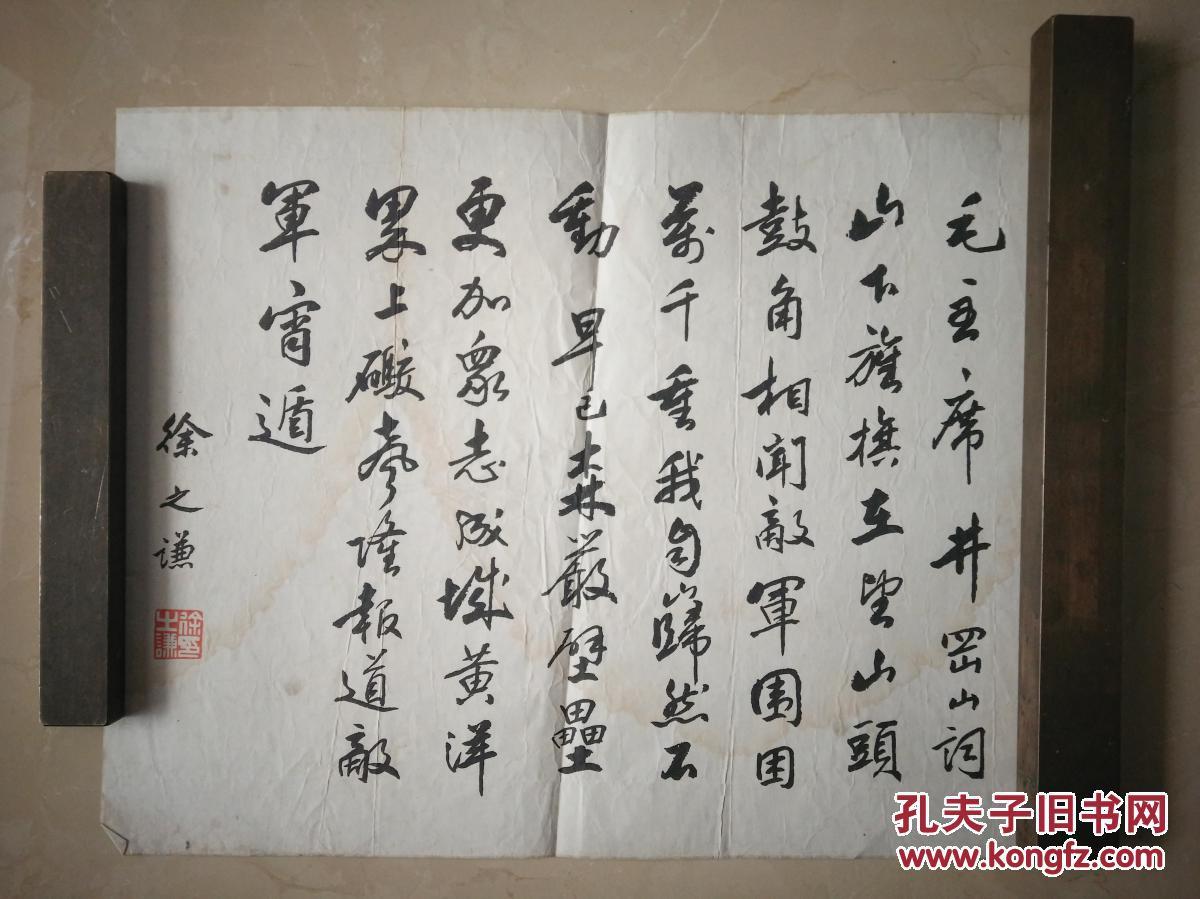 毛主席井岡山詞
山下旌旗在望山頭
鼓角相聞敵軍围困
萬千重我自巋然不
動早已森嚴壁壘
更加眾志成城黄洋
界上礮聲隆報道敵
軍宵遁
徐之謙
徐印之謙
孔夫子旧书网
www.kongfz.com